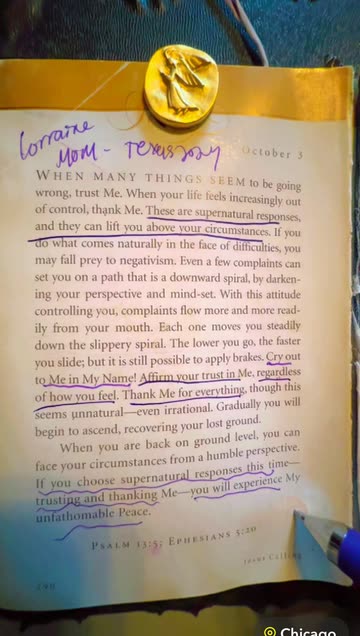 Lorraine
Mom - Texas 2024
October 3
WHEN MANY THINGS SEEM to be going
wrong, trust Me. When your life feels increasingly out
of control, thank Me. These are supernatural responses,
and they can lift you above your circumstances. If you
do what comes naturally in the face of difficulties, you
may fall prey to negativism. Even a few complaints can
set you on a path that is a downward spiral, by darken-
ing your perspective and mind-set. With this attitude
controlling you, complaints flow more and more read-
ily from your mouth. Each one moves you steadily
down the slippery spiral. The lower you go, the faster
you slide; but it is still possible to apply brakes. Cry out
to Me in My Name! Affirm your trust in Me, regardless
of how you feel. Thank Me for everything, though this
seems unnatural—even irrational. Gradually you will
begin to ascend, recovering your lost ground.
When you are back on ground level, you can
face your circumstances from a humble perspective.
If you choose supernatural responses this time—
trusting and thanking Me—you will experience My
unfathomable Peace.
PSALM 13:5; EPHESIANS 5:20
Jesus Calling
290
Chicago